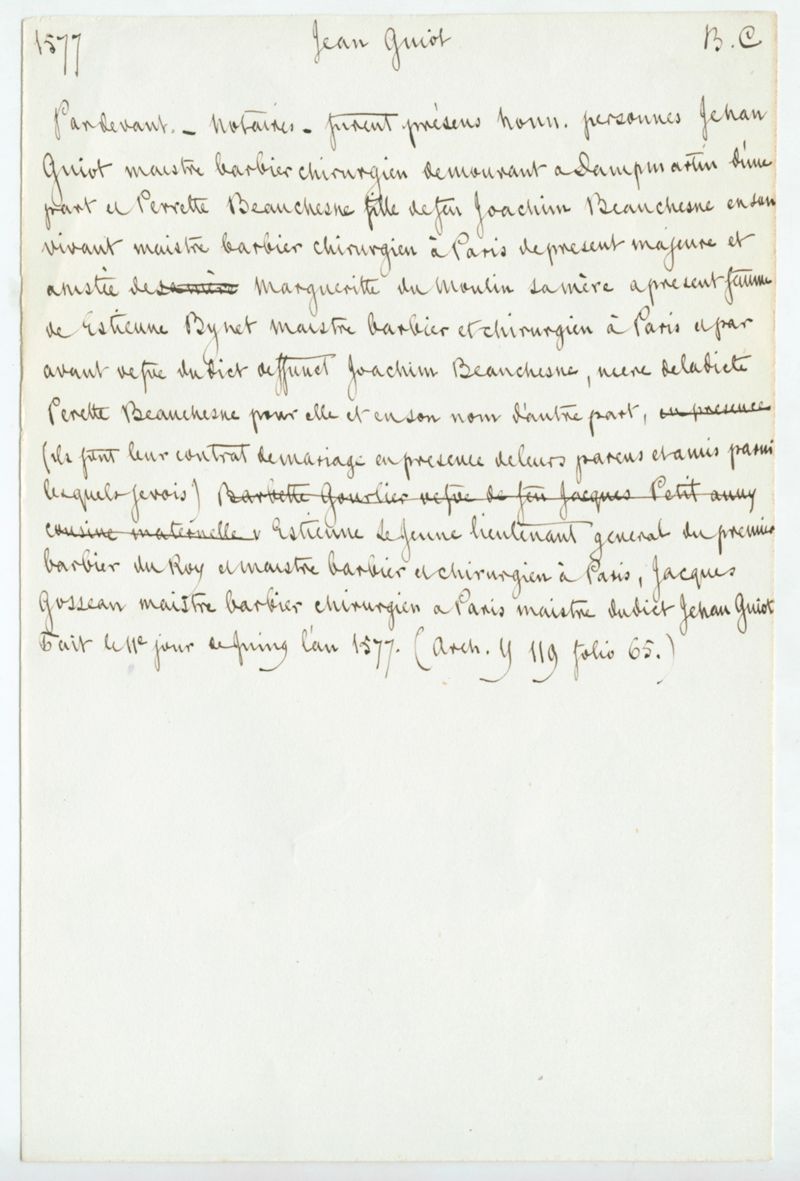 1577 Jean Guiot B. C
Pardevant. _ notaires _ furent présens honn. personnes Jehan
Guiot maistre barbier chirurgien demourant a Dampmartin d'une
part et Perrette Beauchesne fille de feu Joachim Beauchesne en son
vivant maistre barbier chirurgien à Paris de present majeure et
assistée de sa mère Margueritte du Moulin sa mère a present femme
de Estienne Bynet maistre barbier et chirurgien à Paris et par
avant vefve du dict deffunct Joachim Beauchesne, mere de ladicte
Perette Beauchesne pour elle et en son nom d'autre part, en presence
(ils font leur contrat de mariage en presence de leurs parens et amis parmi
lesquels je vois) Barbette Gourlier vefve de feu Jacques Petit
cousine maternelle Estienne Le Jeune lieutenant general du premier
barbier du Roy et maistre barbier et chirurgien à Paris, Jacques
Gosseau maistre barbier chirurgien a Paris maistre dudict Jehan Guiot
Fait le 11e jour de Juing l'an 1577. (Arch. Y 119 folio 65.)